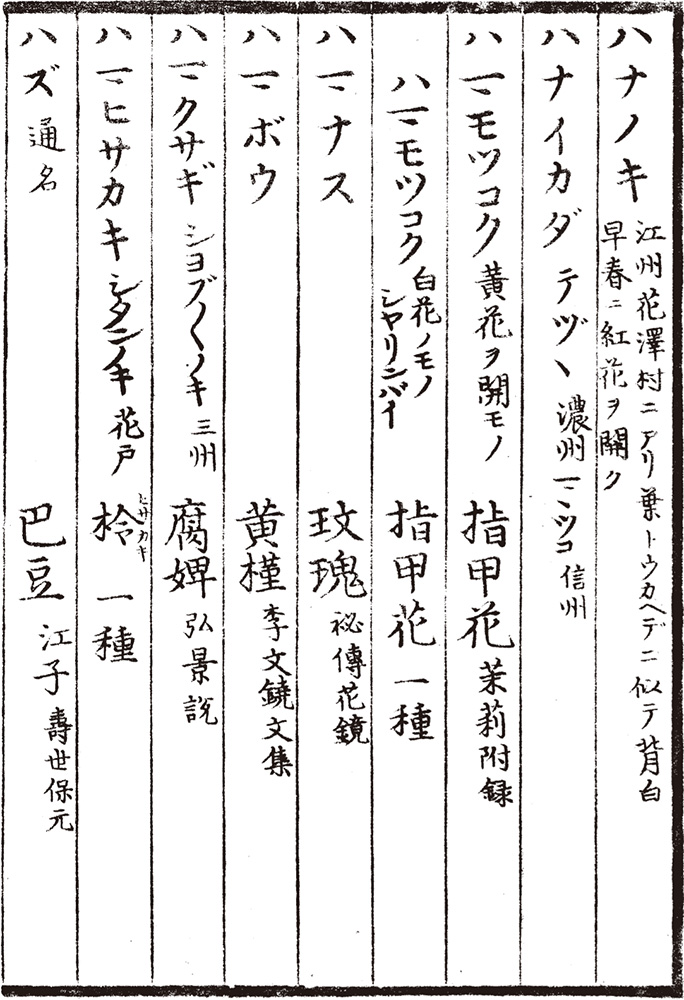 ハナノキ 江州花澤村ニアリ葉トウカヘデニ似テ背白
早春ニ紅花ヲ開ク
ハナイカダ テヅヽ 濃州 マヽツコ 信州
ハマモツコク 黄花ヲ開モノ 指甲花 茉莉附録
ハマモツコク 白花ノモノ
シヤリンバイ 指甲花 一種
ハマナス 玫瑰 祕傳花鏡
ハマボウ 黄槿 李文鐃文集
ハマクサギ シヨブノ〱ノキ 三州 腐婢 弘景説
ハマヒサカキ シタンノキ 花戸 柃 ヒサカキ 一種
ハズ 通名 巴豆 江子 壽世保元